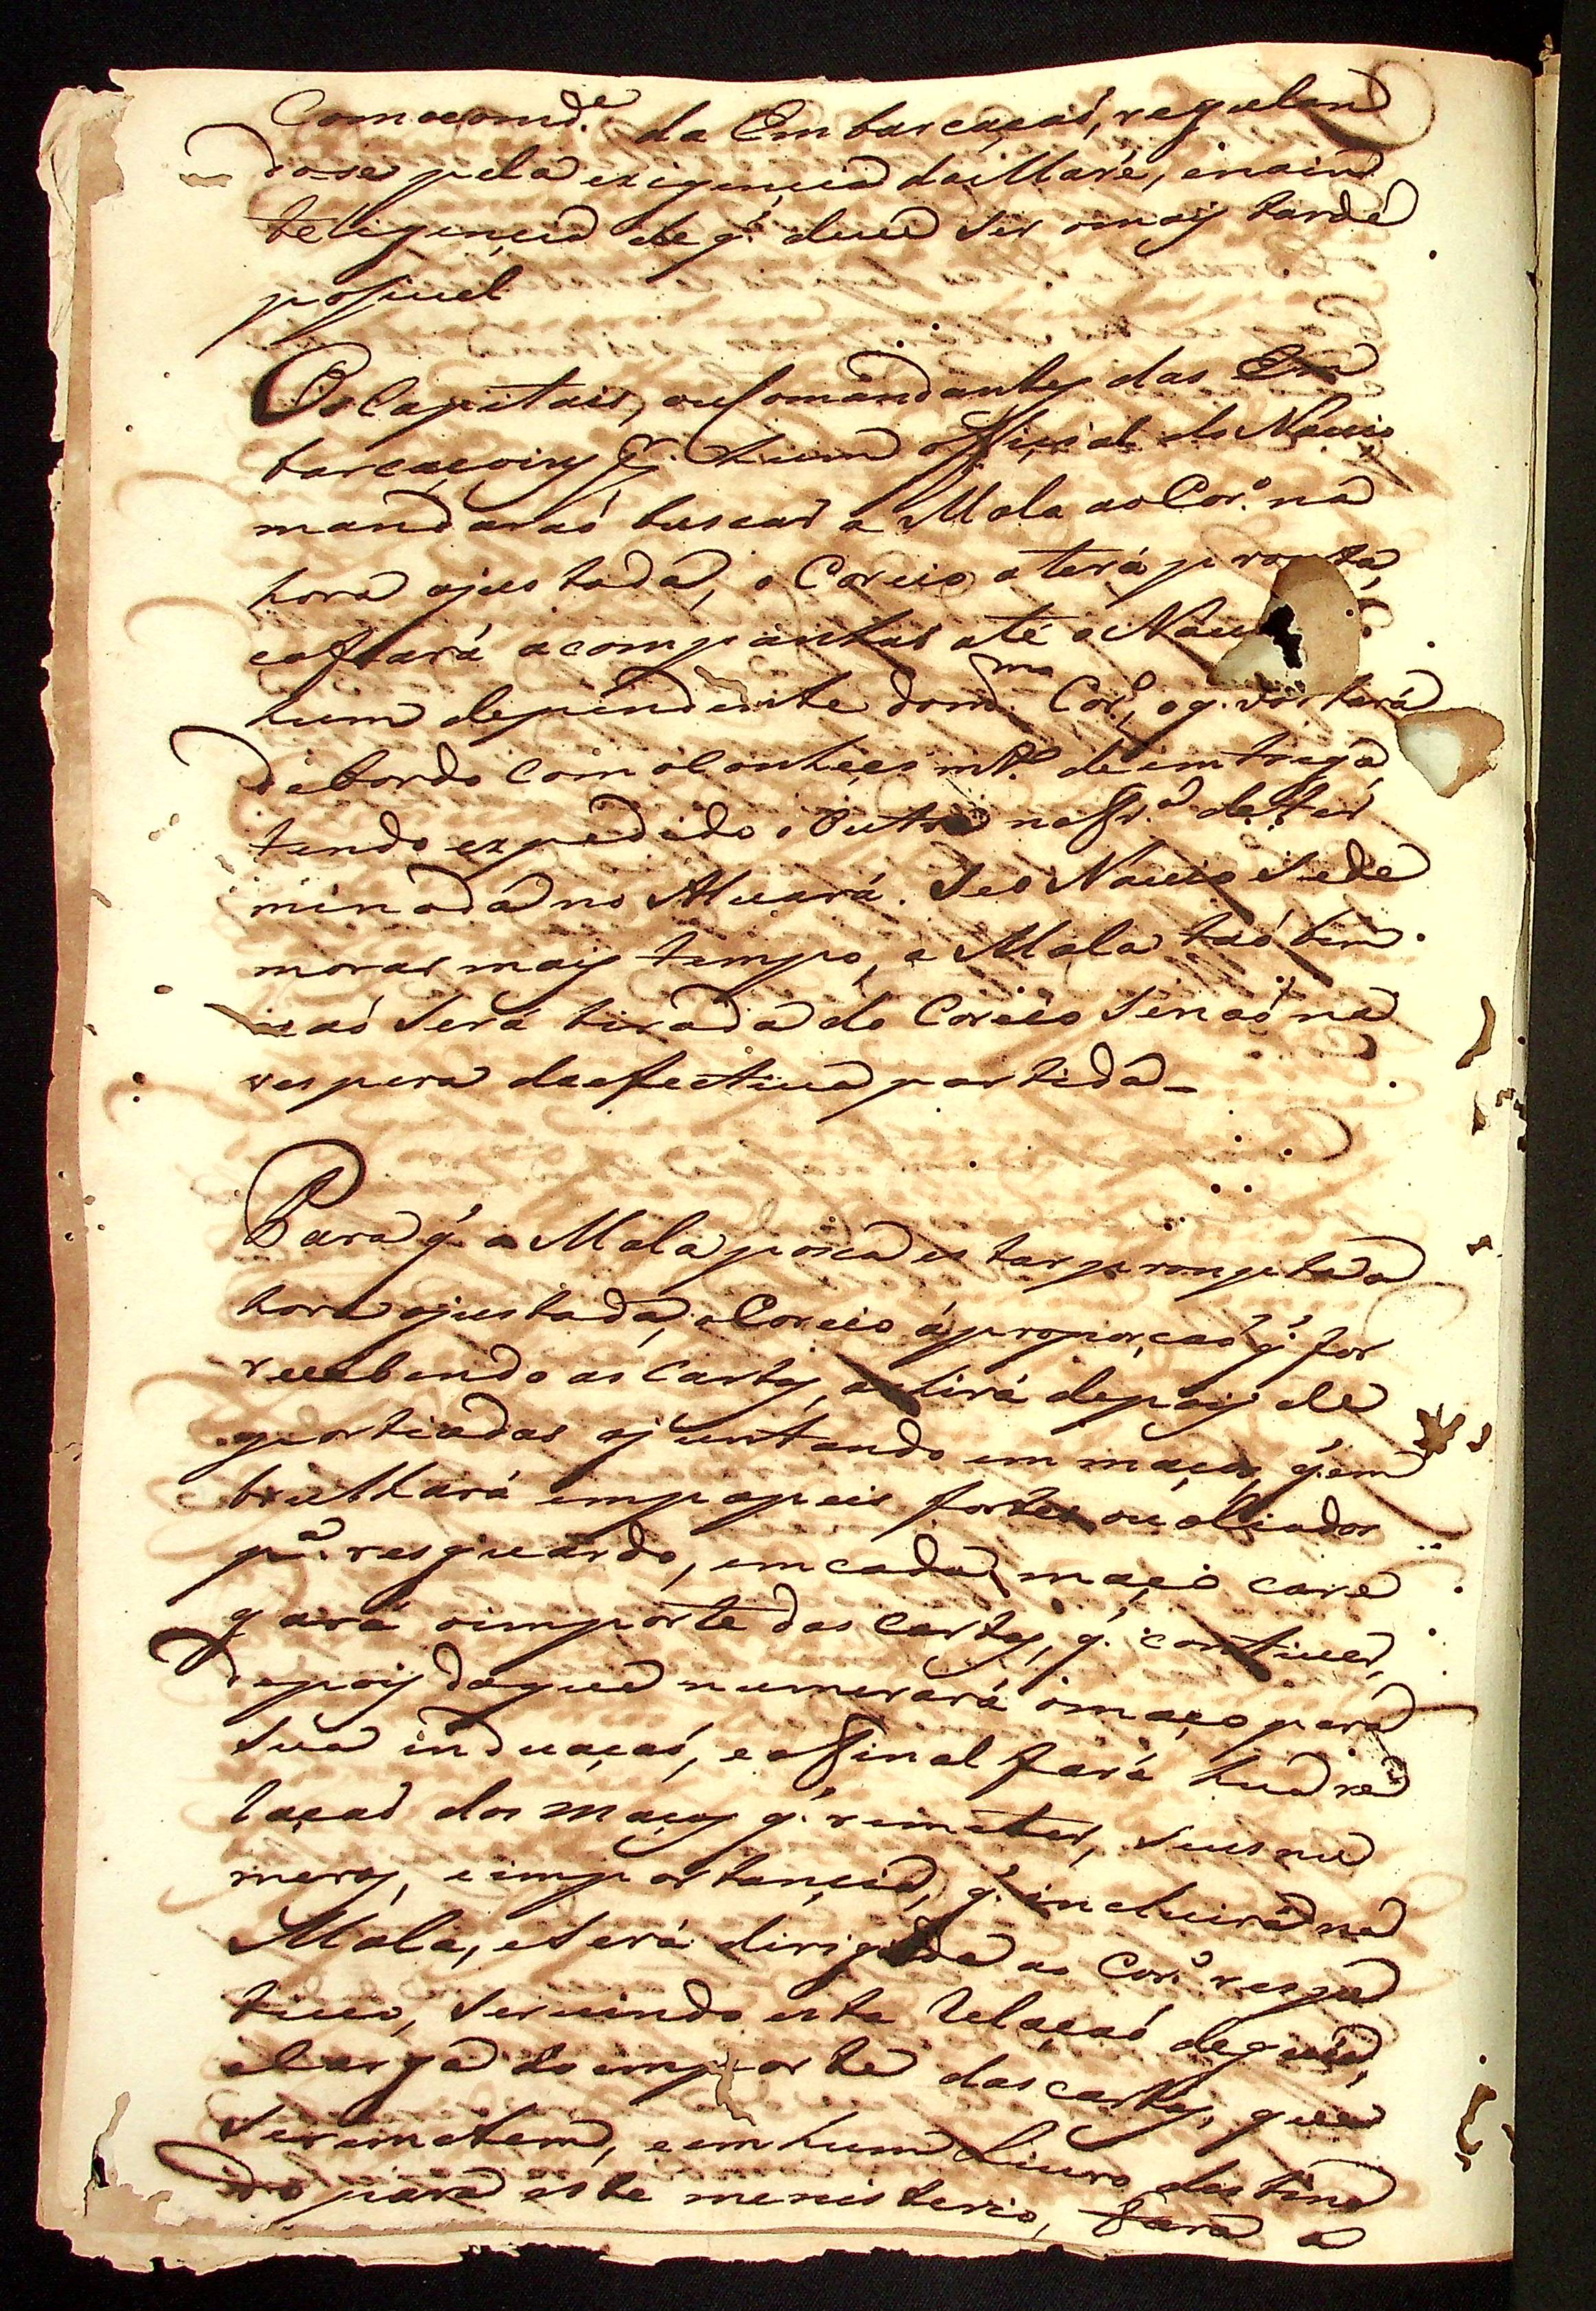 Com o comd.e da Embarcaçaó, regulan
dose pela exigencia da Maré, ena in
teligencia de q.' deue ser o maiz tarde
posiuel
Os Capitais, ou Comandantes das Em
barcaçoins p.r hum official do Nauio
mandaraó buscar a Mala ao Cor.o na
hora ajustada, o Correio a terá pronta,
e a fará acompanhar até o Nauio
hum dependente do m.mo Cor.o, o q. voltará
de bordo com o Conhecim.to de entrega,
tendo expedido o outro na fr.a deter
minada no Aluará. Se o Nauio se de
morar maiz tempo, a Mala taóbem
naó Será tirada do Correio Senaó na
vespera da efectiua partida_
Para q.' a Mala posa estar prompta a
hora ajustada, o Correio á proporçaó q.' for
recebendo as Cartas, as hirá depoiz de
portiadas ajuntando em maços, q.' em
brulhará em papeis fortes ou oliados
p.a resguardo, em cada maço care
gará o importe das Cartas, q.' contiuer,
depoiz do que numerará o maço para
sua induaçaó, e assinal fará hua re
laçaó dos maços q.' remeter, seus nu
meros, e importancia, q.' incluirá na
Mala, e Será dirigida ao Cor.o respe
tiuo, Seruindo esta Relaçaó de guia,
e Carga do importe das cartas, que
se remetem, e em hum Liuro destina
do para este menisterio, fará a